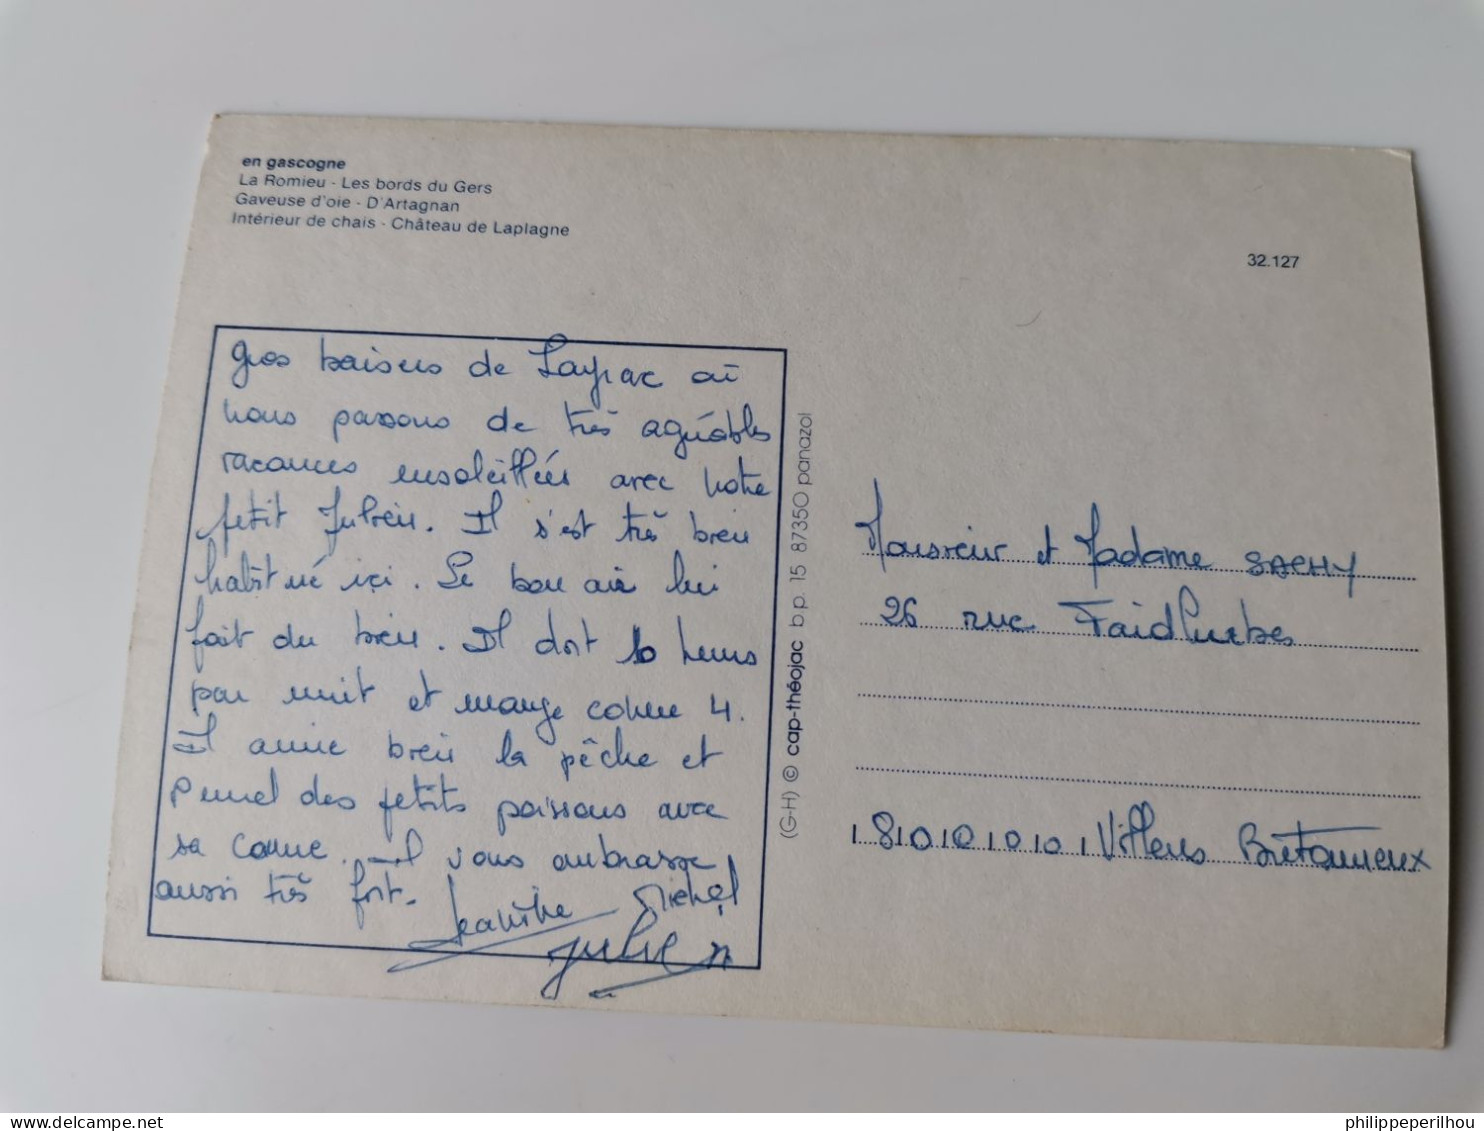 en gascogne
La Romieu - Les bords du Gers
Gaveuse d'oie - D'Artagnan
Intérieur de chais - Château de Laplagne
32.127
Gros baisers de Layrac où
nous passons de très agréables
vacances ensoleillées avec notre
petit Julien. Il s'est très bien
habitué ici. Le bon air lui
fait du bien. Il dort 10 heures
par nuit et mange comme 4.
Il aime bien la pêche et
prend des petits poissons avec
sa canne. Il vous embrasse
aussi très fort.
Michel
Julien
(G-H) © cap-théojac b.p. 15 87350 panazol
Monsieur et Madame SACHY
26 rue Faidherbe
80000 Villers Bretonneux
delcampe.net
philippeperilhou